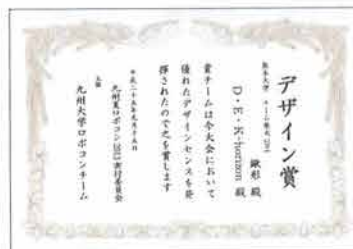 デザイン賞
熊本大学 チーム熊大
鍬形 殿
D・E・K-horizon 殿
貴チームは今大会において
優れたデザインセンスを発
揮されたので之を賞します
平成二十五年九月十五日
九州夏ロボコン2013実行委員会
主催
九州大学ロボコンチーム